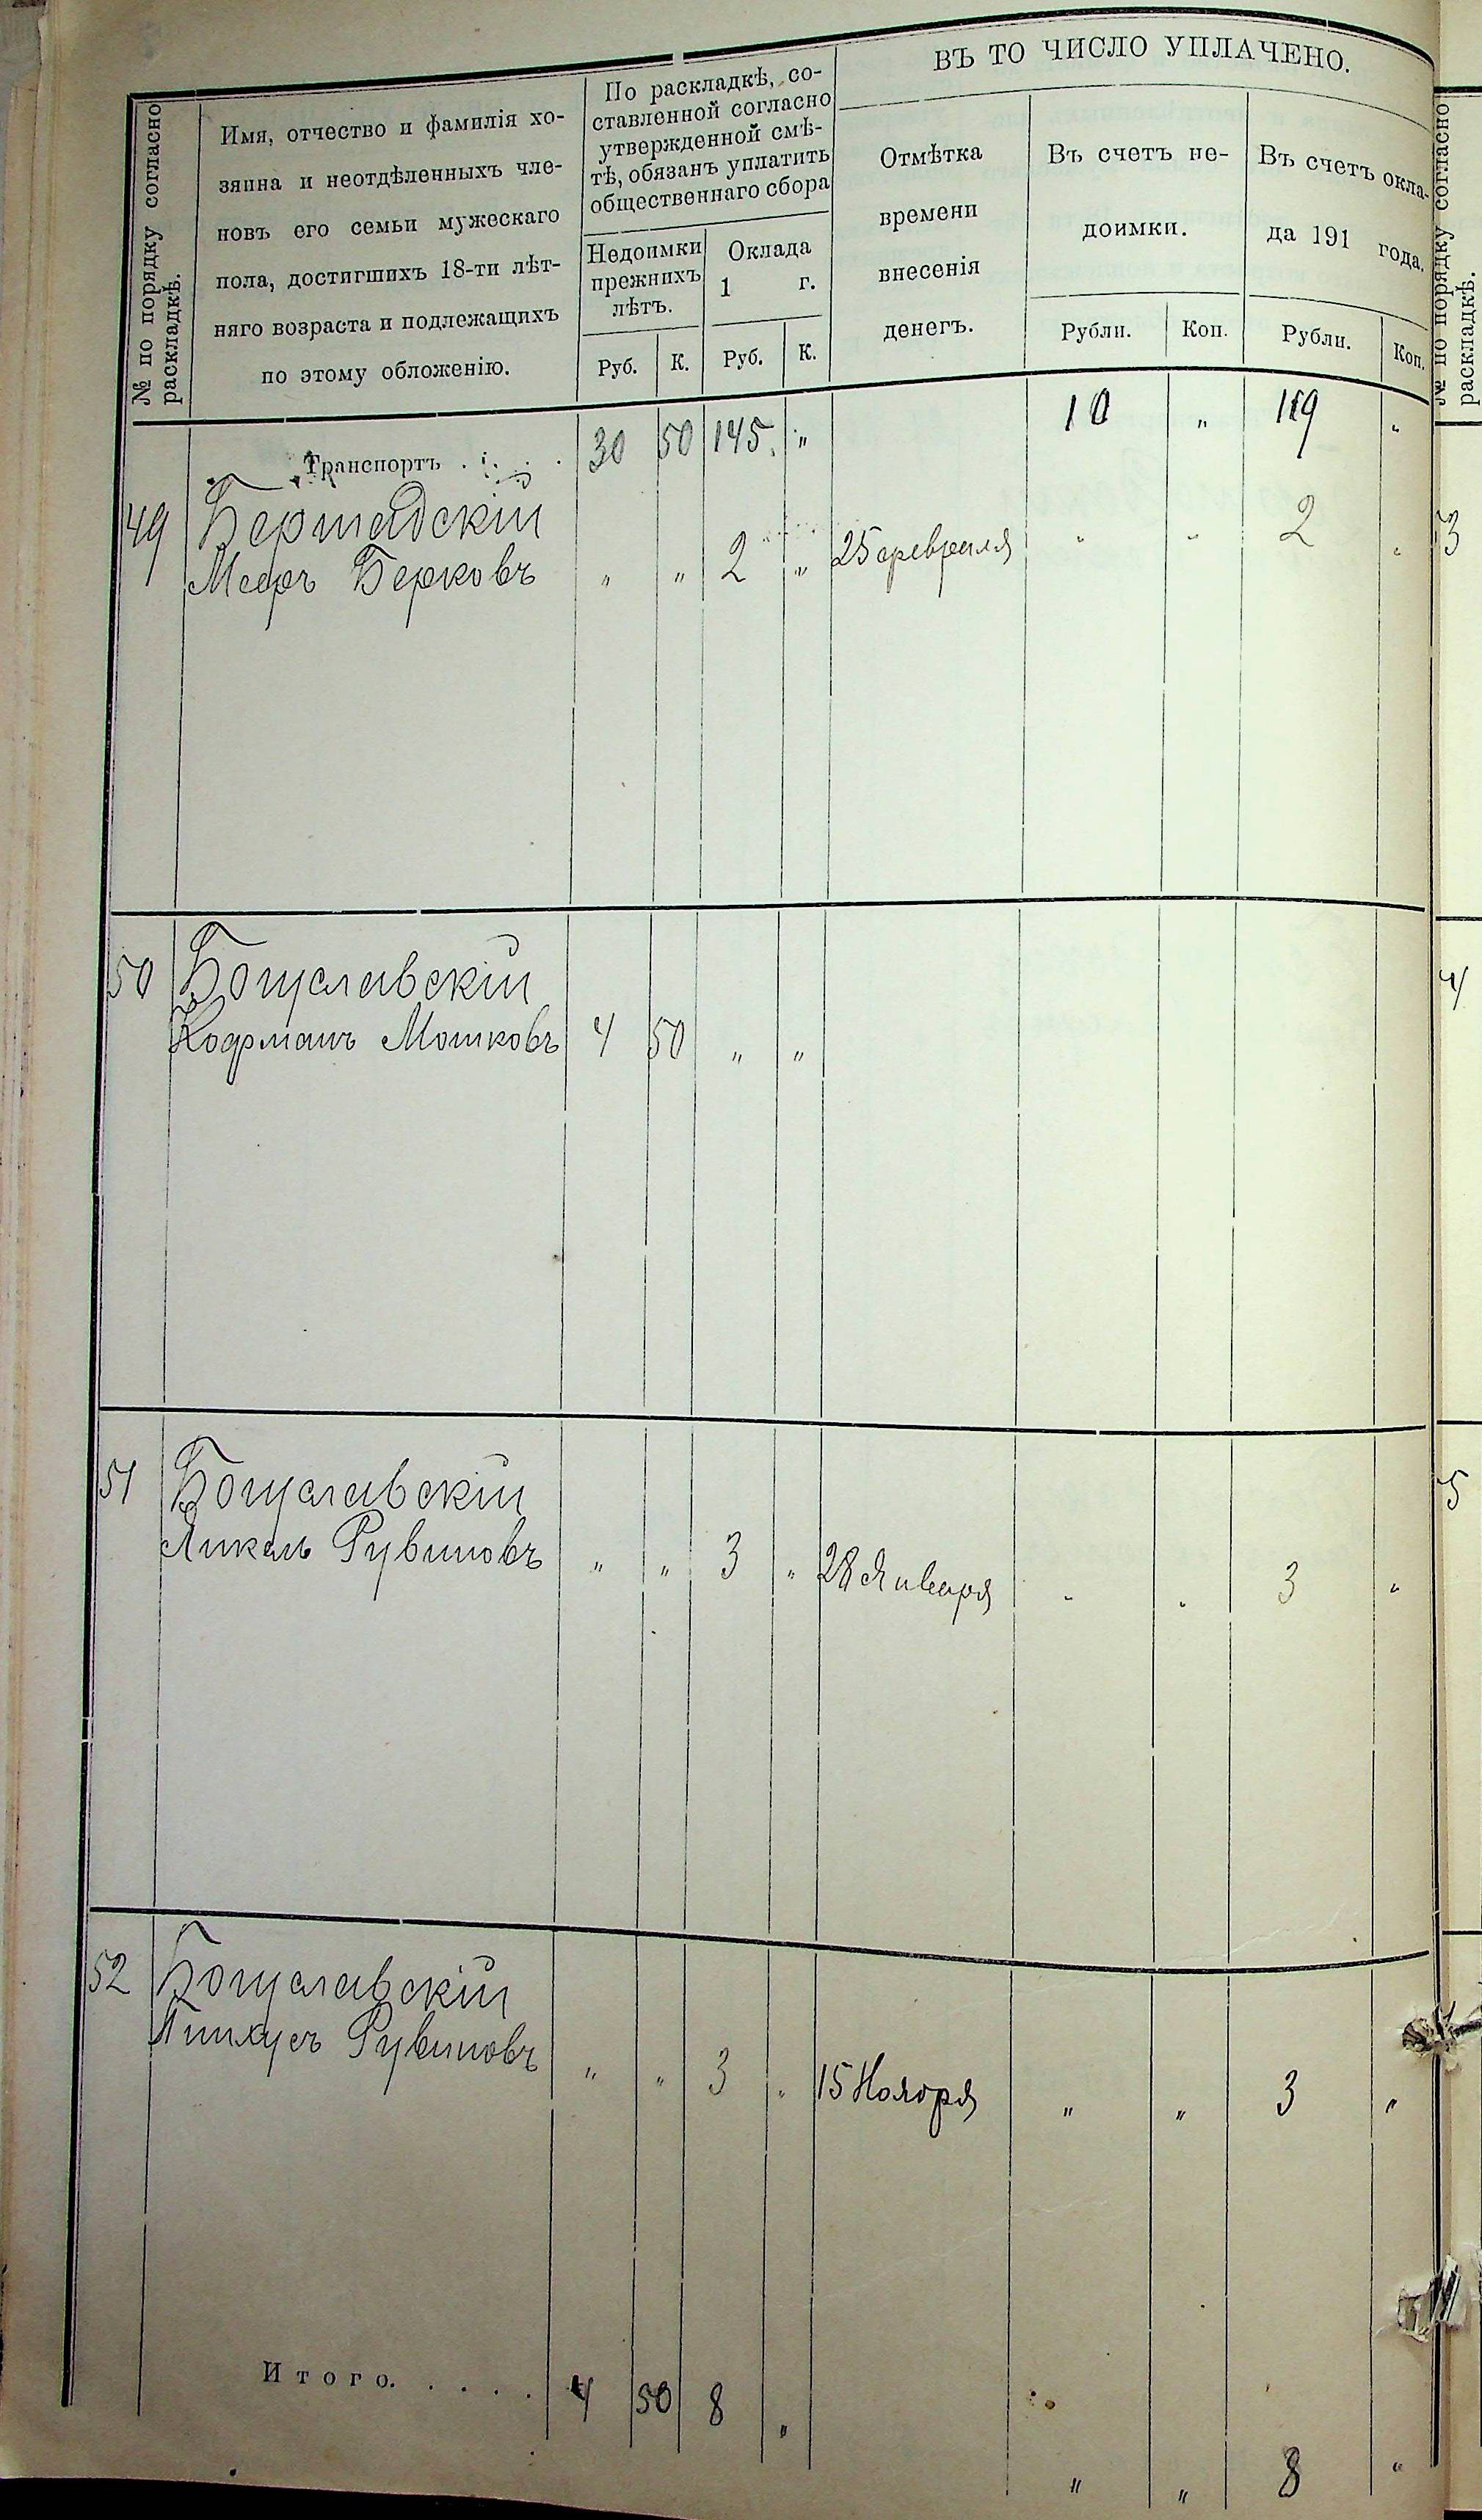 № по порядку согласно
раскладкѣ.
Имя, отчество и фамилія хо-
зяина и неотдѣленныхъ чле-
новъ его семьи мужескаго
пола, достигшихъ 18-ти лѣт-
няго возраста и подлежащихъ
по этому обложенію.
По раскладкѣ, со-
ставленной согласно
утвержденной смѣ-
тѣ, обязанъ уплатить
общественнаго сбора
Недоимки
прежнихъ
лѣтъ.
Руб. К.
Оклада
1 г.
Руб. К.
ВЪ ТО ЧИСЛО УПЛАЧЕНО.
Отмѣтка
времени
внесенія
денегъ.
Въ счетъ не-
доимки.
Рубли. Коп.
Въ счетъ окла-
да 191 года.
Рубли. Коп.
№ по порядку согласно
раскладкѣ.
Транспортъ . . . . 30 50 145 „ 10 „ 119 „
49 Бершадскій
Мееръ Берковъ „ „ 2 „ 25 февраля „ „ 2 „
3
50 Богуславскій
Кофманъ Мошковъ 4 50 „ „
4
51 Богуславскій
Янкель Рувиновъ „ „ 3 „ 28 Января „ „ 3 „
5
52 Богуславскій
Пинхусъ Рувиновъ „ „ 3 „ 15 Ноября „ „ 3 „
Итого. . . . . 4 50 8 „ „ „ 8 „